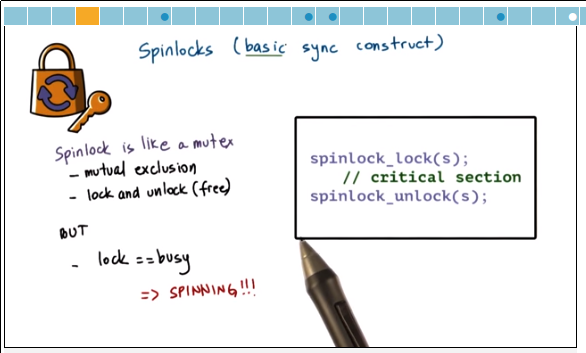 Spinlocks (basic sync construct)
Spinlock is like a mutex
- mutual exclusion
- lock and unlock (free)
BUT
- lock == busy
=> SPINNING!!!
spinlock_lock(s);
// critical section
spinlock_unlock(s);